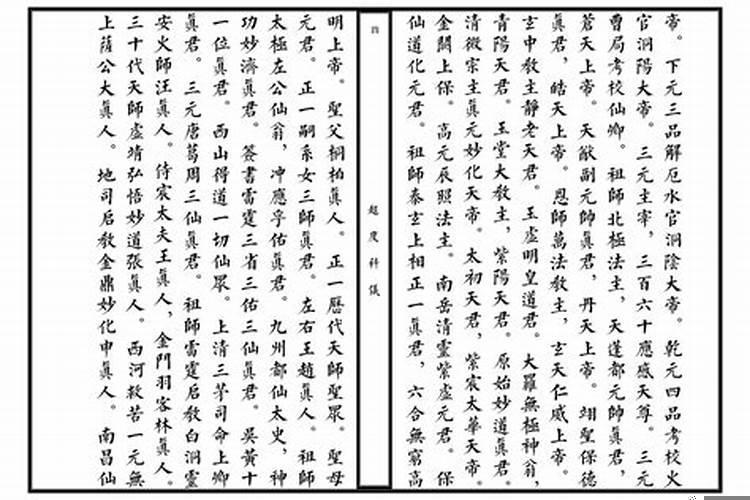 帝。下元三品解厄水官洞陰大帝。乾元四品考校火
官洞陽大帝。三元主宰，三百六十應感天尊。三元
曹局考校仙卿。祖師北極法主，天蓬都元帥真君，
蒼天上帝。天猷副元帥真君，丹天上帝。翊聖保德
真君，皓天上帝。恩師萬法教主，玄天仁威上帝。
玄中教主靜老天君。玉虛明皇道君。大羅無極神翁，
青陽天君。玉堂大教主，紫陽天君。原始妙道真君。
清微宗主真元妙化天帝。太初天君，紫宸太華天帝。
金闕上保。高元辰照法主。南岳清靈紫虛元君。保
仙道化元君。祖師泰玄上相正一真君，六合無窮高
四
超度科儀
明上帝。聖父桐柏真人。正一歷代天師聖眾。聖母
元君。正一嗣系女三師真君。左右王趙真人。祖師
太極左公仙翁，冲應孚佑真君。九州都仙太史，神
功妙濟真君。簽書雷霆三省三佑三仙真君。吳黃十
一位真君。西山得道一切仙眾。上清三茅司命上卿
真君。三元唐葛周三仙真君。祖師雷霆启教白洞靈
安火師汪真人。侍宸太夫王真人，金門羽客林真人。
三十代天師虛靖弘悟妙道張真人。西河救苦一元無
上薩公大真人。地司启教金鼎妙化申真人。南昌仙